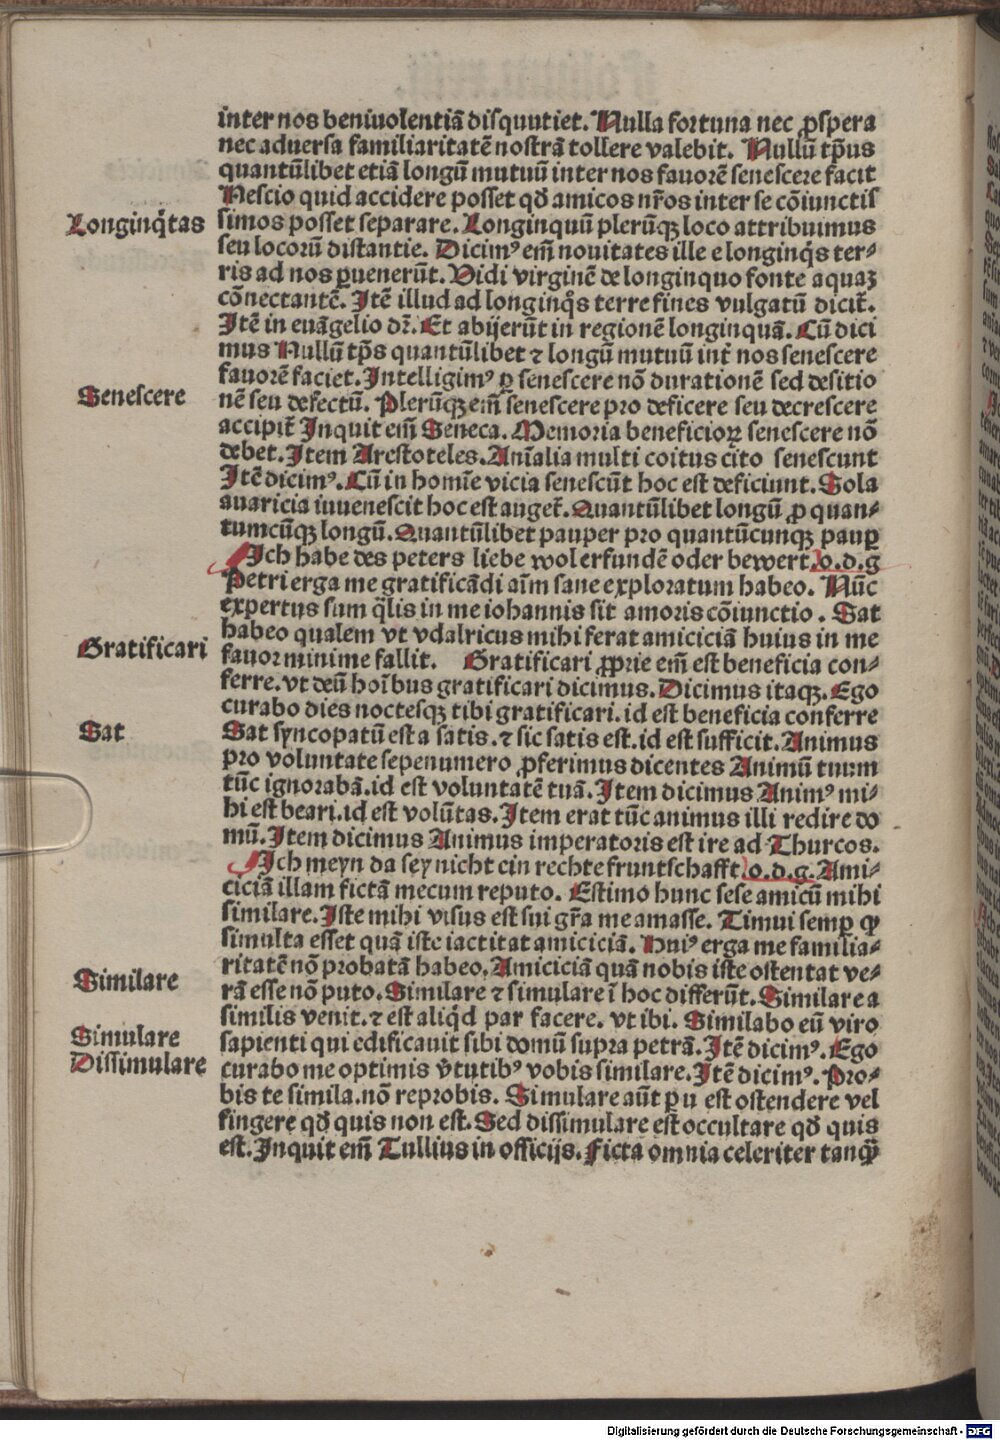 inter nos beniuolentiā disquutiet. Nulla fortuna nec ꝓspera
nec aduersa familiaritatē nostrā tollere valebit. Nullū tp̄us
quantūlibet etiā longū mutuū inter nos fauorē senescere facit
Nescio quid accidere posset qđ amicos nr̄os inter se cōiunctis
Longinq̄tas
simos posset separare. Longinquū plerūqꝫ loco attribuimus
seu locorū distantie. Dicimꝰ em̄ nouitates ille e longinq̄s ter⸗
ris ad nos ꝑuenerūt. Vidi virginē de longinquo fonte aquaꝫ
cōnectantē. Itē illud ad longinq̊s terre fines vulgatū dicit̄.
Itē in euāgelio dr̄. Et abijerūt in regionē longinquā. Cū dici
mus Nullū tp̄s quantūlibet ⁊ longū mutuū int̄ nos senescere
fauorē faciet. Intelligimꝰ ꝙ senescere nō durationē sed desitio
Senescere
nē seu defectū. Plerūqꝫ em̄ senescere pro deficere seu decrescere
accipit̄ Inquit em̄ Seneca. Memoria beneficioꝝ senescere nō
debet. Item Arestoteles. Aīalia multi coitus cito senescunt
Itē dicimꝰ. Cū in homīe vicia senescūt hoc est deficiunt. Sola
auaricia iuuenescit hoc est auget̄. Quantūlibet longū ꝓ quan⸗
tumcūqꝫ longū. Quantūlibet pauper pro quantūcunqꝫ pauꝑ
Ich habe des peters liebe wol erfundē oder bewert. o.d.g
Petri erga me gratificādi aīm sane exploratum habeo. Nūc
expertus sum q̄lis in me iohannis sit amoris cōiunctio. Sat
habeo qualem vt vdalricus mihi ferat amiciciā huius in me
Gratificari
fauor minime fallit. Gratificari ꝓprie em̄ est beneficia con⸗
ferre. vt deū hoībus gratificari dicimus. Dicimus itaqꝫ. Ego
curabo dies noctesqꝫ tibi gratificari. id est beneficia conferre
Sat
Sat syncopatū est a satis. ⁊ sic satis est. id est sufficit. Animus
pro voluntate sepenumero ꝓferimus dicentes Animū tuum
tūc ignorabā. id est voluntatē tuā. Item dicimus Animꝰ mi⸗
hi est beari. id est volūtas. Item erat tūc animus illi redire do
mū. Item dicimus Animus imperatoris est ire ad Thurcos.
Ich meyn da sey nicht ein rechte fruntschafft o.d.g. Ami⸗
ciciā illam fictā mecum reputo. Estimo hunc sese amicū mihi
similare. Iste mihi visus est sui gr̄a me amasse. Timui semꝑ ꝙ
simulta esset quā iste iactitat amiciciā. Hniꝰ erga me familia⸗
ritatē nō probatā habeo. Amiciciā quā nobis iste ostentat ve⸗
Similare
rā esse nō puto. Similare ⁊ simulare ī hoc differūt. Similare a
similis venit. ⁊ est aliq̄d par facere. vt ibi. Similabo eū viro
Simulare
sapienti qui edificauit sibi domū supra petrā. Itē dicimꝰ. Ego
Dissimulare
curabo me optimis v̄tutibꝰ vobis similare. Itē dicimꝰ. Pro⸗
bis te simila. nō reprobis. Simulare aūt ꝑ u est ostendere vel
fingere qđ quis non est. Sed dissimulare est occultare qđ quis
est. Inquit em̄ Tullius in officijs. Ficta omnia celeriter tanꝙ̄
Digitalisierung gefördert durch die Deutsche Forschungsgemeinschaft - DFG